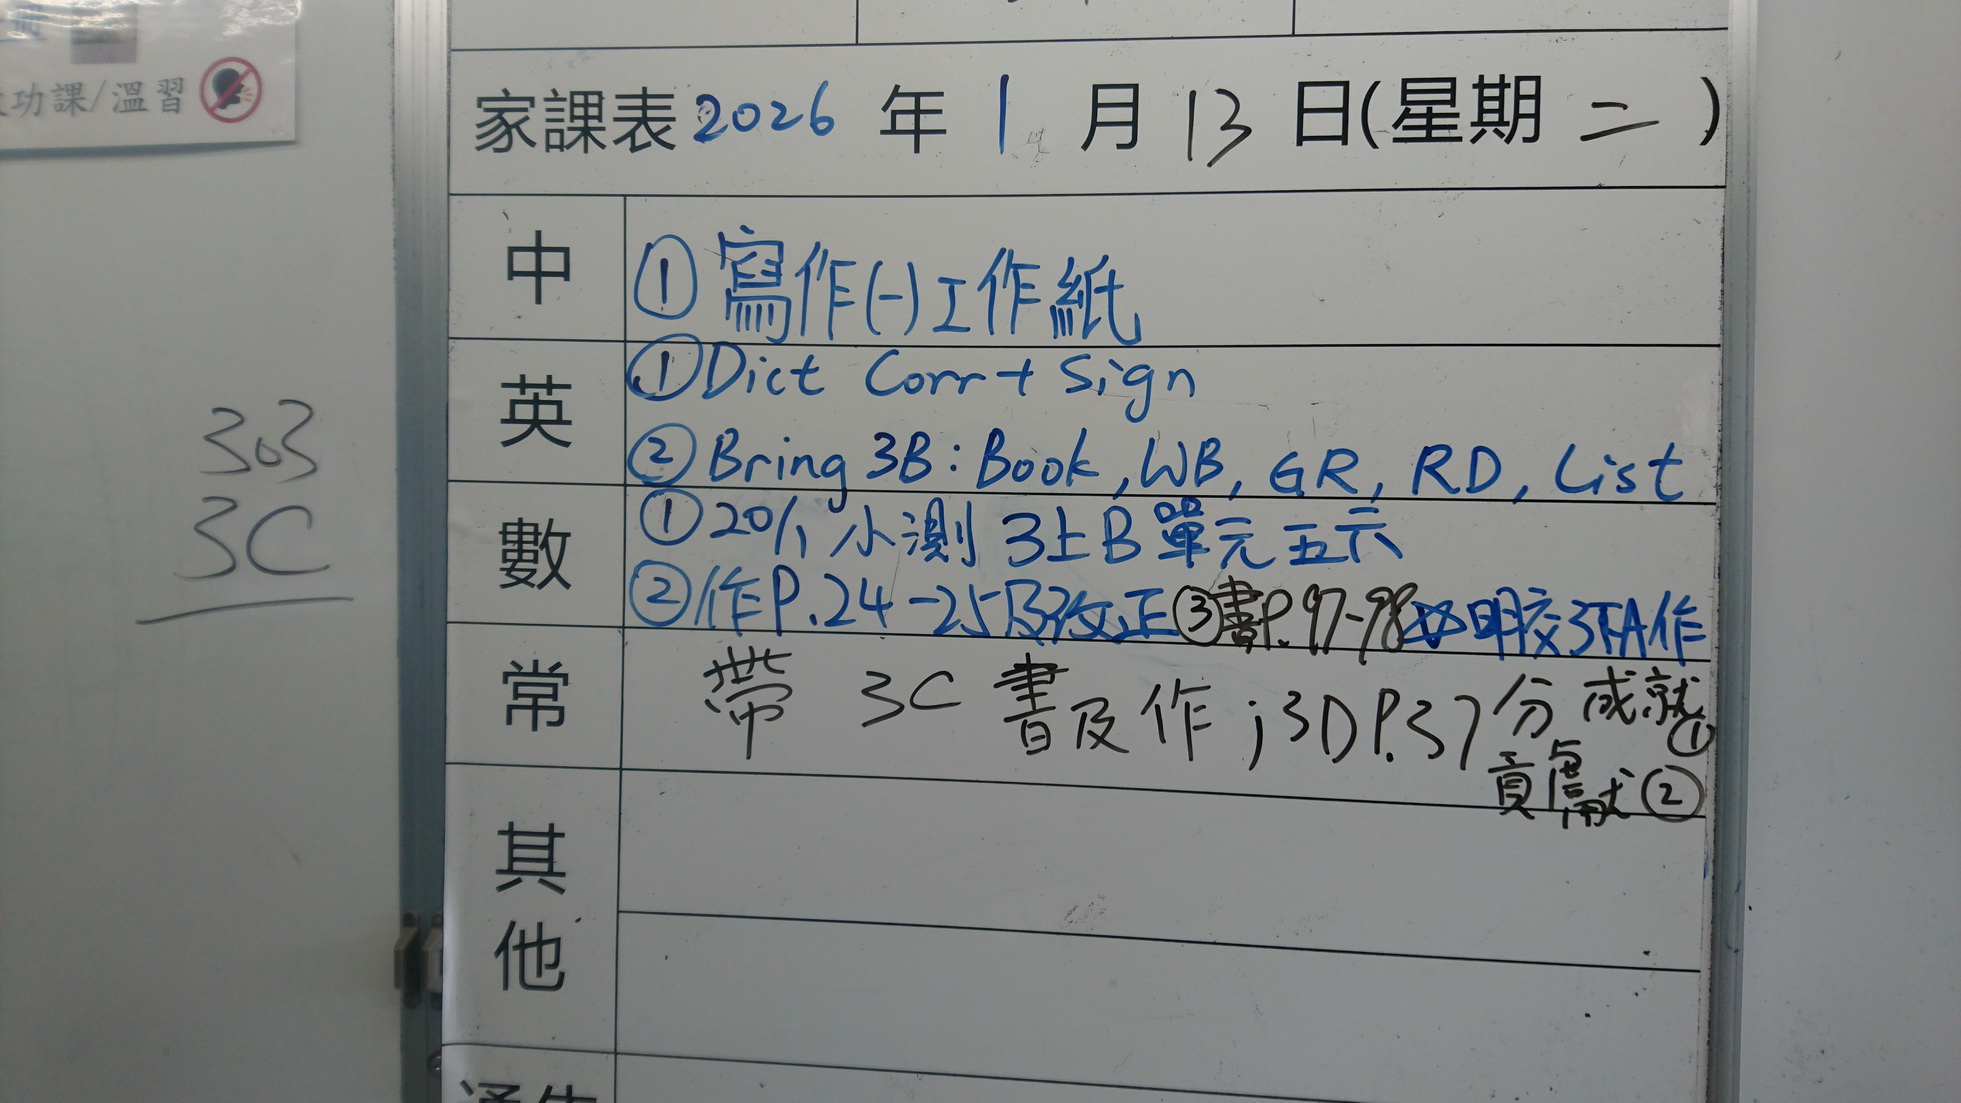 功課/溫習
303
3C
家課表 2026 年 1 月 13 日(星期 二 )
中 ① 寫作(一)工作紙
英 ① Dict Corr + Sign
② Bring 3B : Book, WB, GR, RD, List
數 ① 小測 3上B 單元五六
② 作P.24-25及改正 ③書P.97-98 明交3TA作
常 帶 3C 書及作 ; 3D P.37 分 成就①
貢獻②
其他